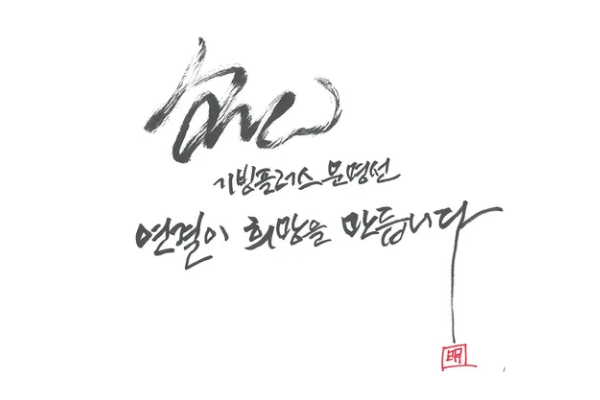 기빙플러스 문명선
연결이 희망을 만듭니다
明